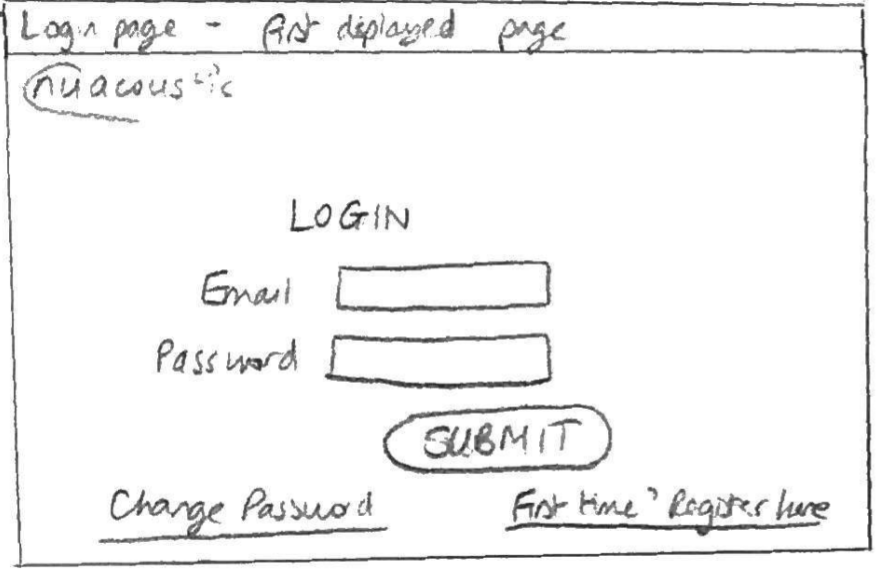 Login page - first displayed page
nuacoustic
LOGIN
Email
Password
SUBMIT
Change Password
First time? Register here